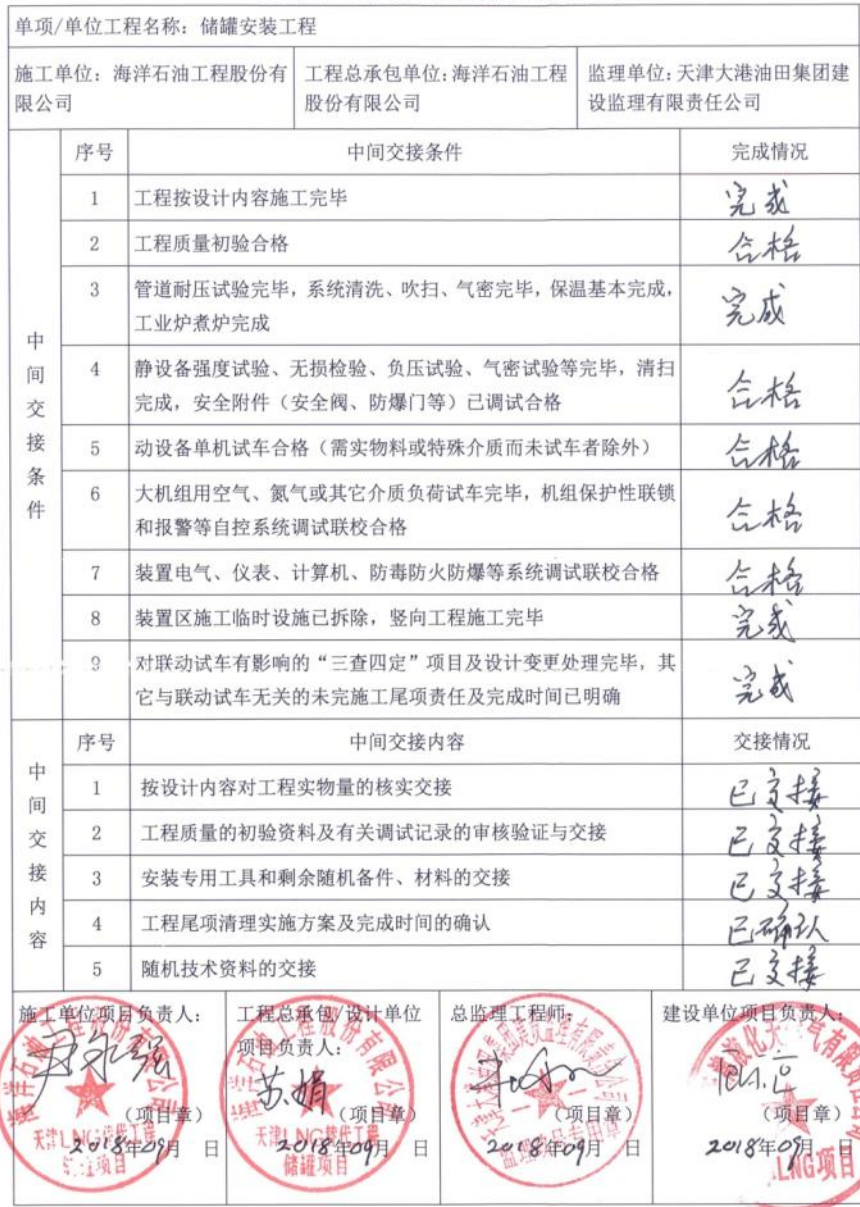 单项/单位工程名称：储罐安装工程
施工单位：海洋石油工程股份有
限公司
工程总承包单位：海洋石油工程
股份有限公司
监理单位：天津大港油田集团建
设监理有限责任公司
中间交接条件
序号 中间交接条件 完成情况
1 工程按设计内容施工完毕 完成
2 工程质量初验合格 合格
3 管道耐压试验完毕，系统清洗、吹扫、气密完毕，保温基本完成，
工业炉煮炉完成 完成
4 静设备强度试验、无损检验、负压试验、气密试验等完毕，清扫
完成，安全附件（安全阀、防爆门等）已调试合格 合格
5 动设备单机试车合格（需实物料或特殊介质而未试车者除外） 合格
6 大机组用空气、氮气或其它介质负荷试车完毕，机组保护性联锁
和报警等自控系统调试联校合格 合格
7 装置电气、仪表、计算机、防毒防火防爆等系统调试联校合格 合格
8 装置区施工临时设施已拆除，竖向工程施工完毕 完成
9 对联动试车有影响的“三查四定”项目及设计变更处理完毕，其
它与联动试车无关的未完施工尾项责任及完成时间已明确 完成
中间交接内容
序号 中间交接内容 交接情况
1 按设计内容对工程实物量的核实交接 已交接
2 工程质量的初验资料及有关调试记录的审核验证与交接 已交接
3 安装专用工具和剩余随机备件、材料的交接 已交接
4 工程尾项清理实施方案及完成时间的确认 已确认
5 随机技术资料的交接 已交接
施工单位项目负责人：
尹永强
（项目章）
2018年09月 日
工程总承包/设计单位
项目负责人：
苏娟
（项目章）
2018年09月 日
总监理工程师：
（项目章）
2018年09月 日
建设单位项目负责人：
（项目章）
2018年09月 日
海洋石油工程股份有限公司
天津LNG替代工程
海洋石油工程股份有限公司
天津LNG替代工程
储罐项目
LNG项目